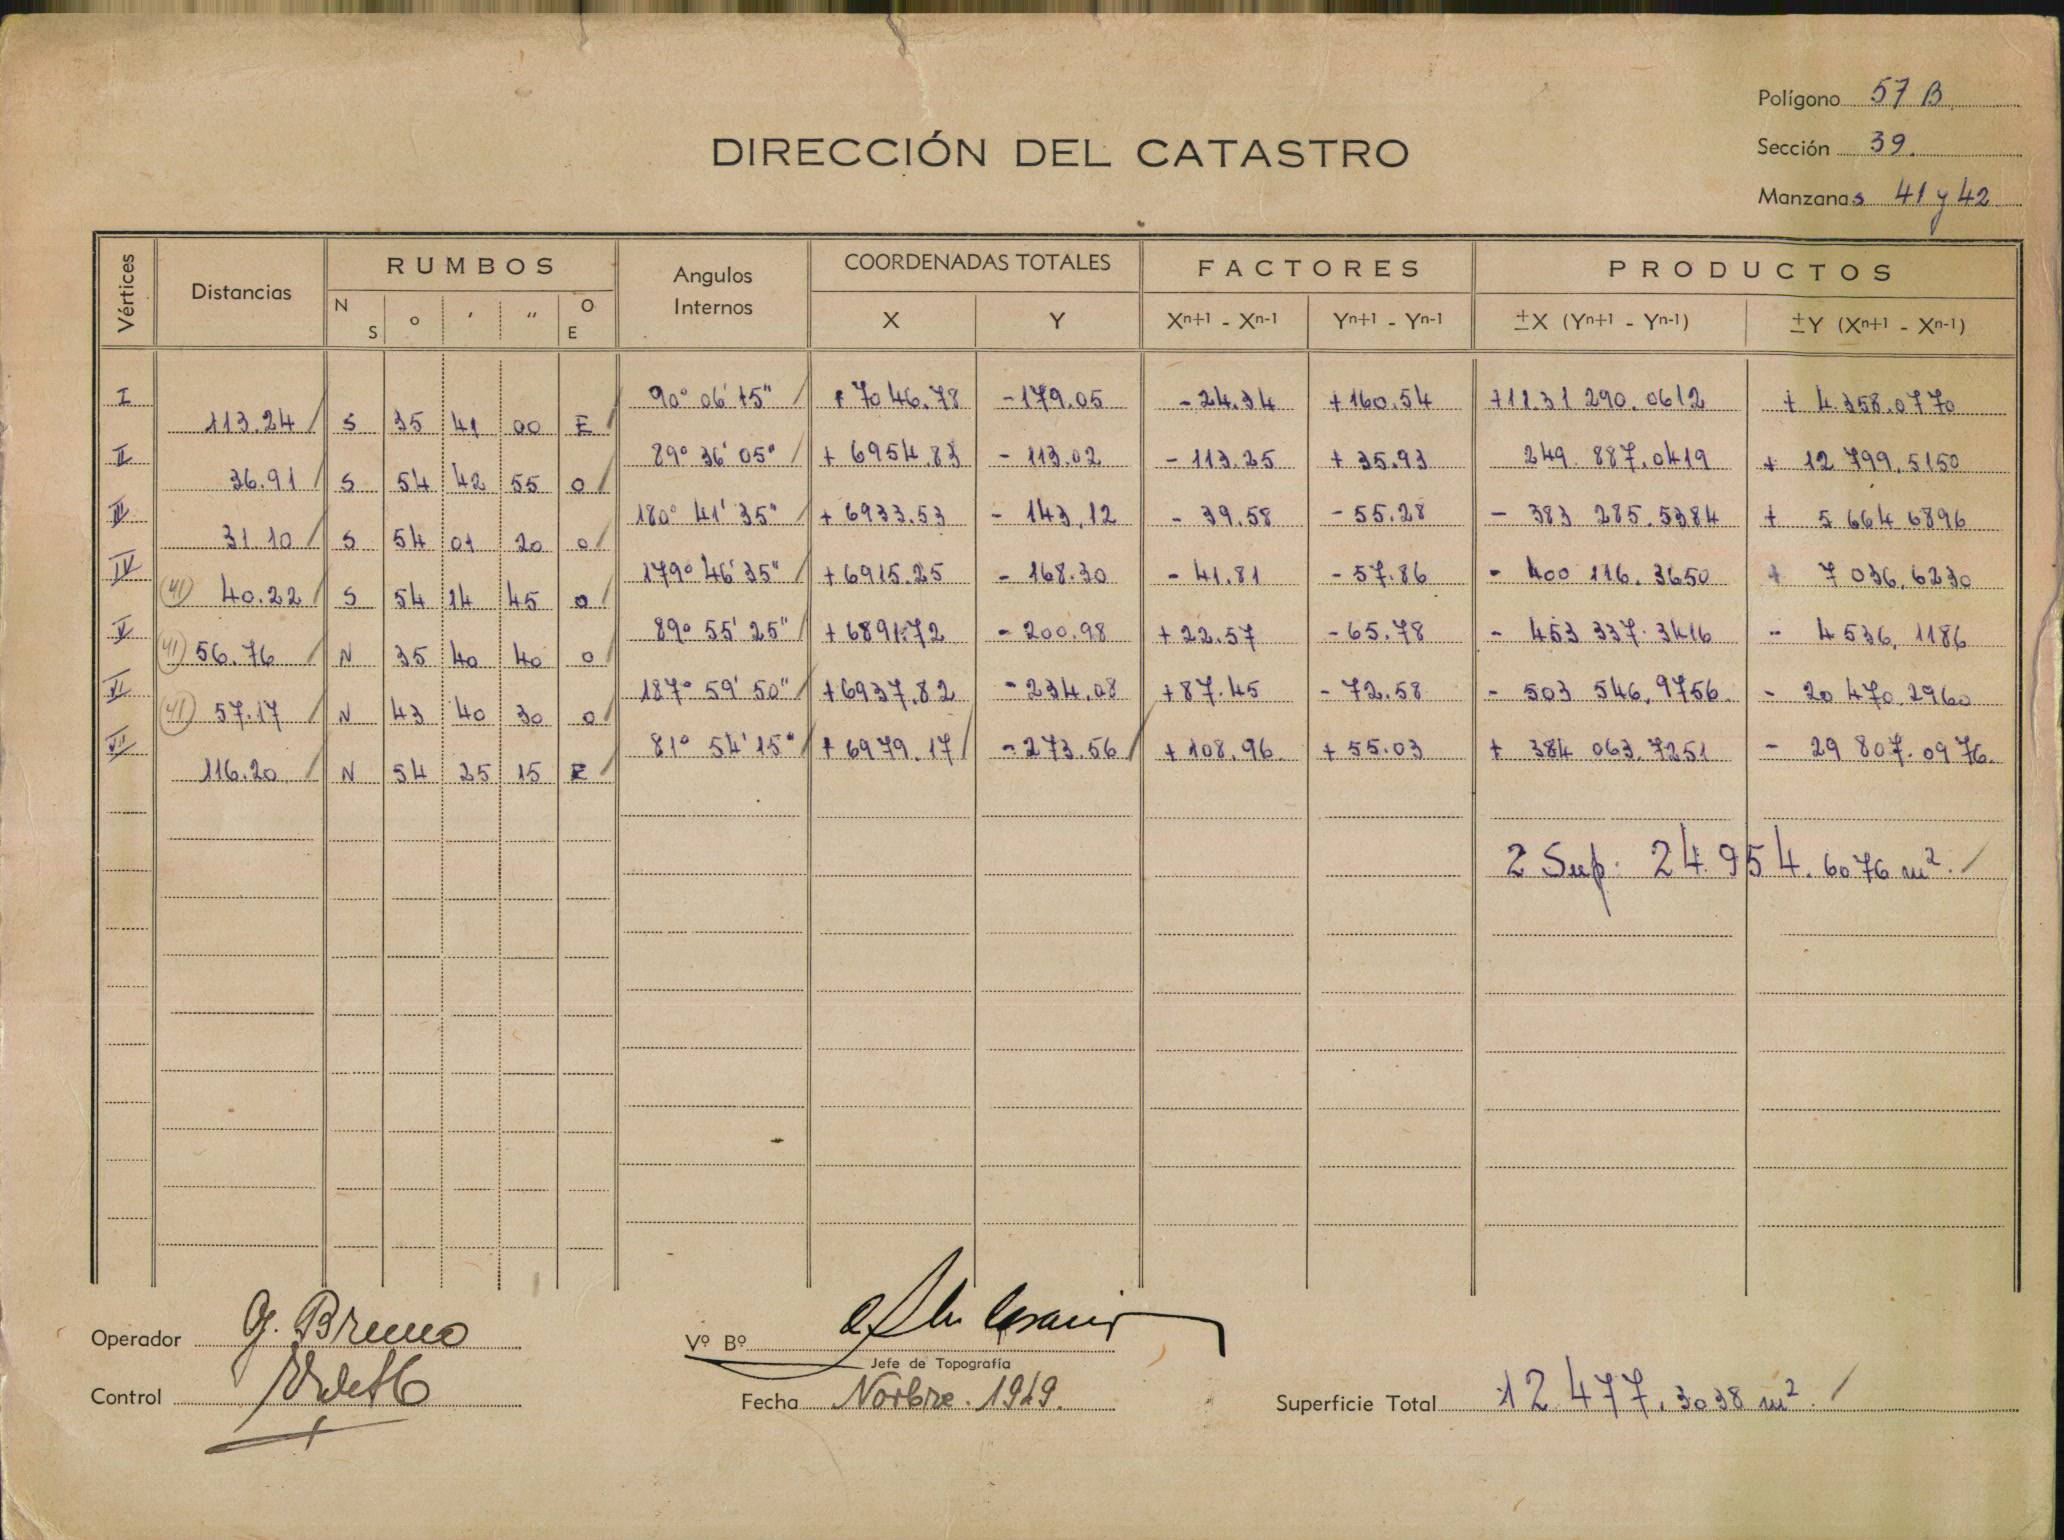 Polígono 57 B
DIRECCIÓN DEL CATASTRO
Sección 39.
Manzanas 41 y 42
Vértices Distancias RUMBOS Angulos Internos COORDENADAS TOTALES FACTORES PRODUCTOS
N S o ' '' O E X Y Xn+1 - Xn-1 Yn+1 - Yn-1 ±X (Yn+1 - Yn-1) ±Y (Xn+1 - Xn-1)
I 90° 06' 15" + 7046.78 - 179.05 - 24.34 + 160.54 +1131 290.0612 + 4.358.0770
113.24 S 35 41 00 E
II 89° 36' 05" + 6954.83 - 113.02 - 113.25 + 35.93 249.887.0419 + 12 799.5150
36.91 S 54 42 55 O
III 180° 41' 35" + 6933.53 - 143.12 - 39.58 - 55.28 - 383 285.5384 + 5 664 6896
31.10 S 54 01 20 O
IV 179° 46' 35" + 6915.25 - 168.30 - 41.81 - 57.86 - 400 116.3650 + 7 036.6230
(41) 40.22 S 54 14 45 O
V 89° 55' 25" + 6891.72 - 200.98 + 22.57 - 65.78 - 453 337.3416 - 4 536, 1186
(41) 56.76 N 35 40 40 O
VI 187° 59' 50" + 6937.82 - 234.08 + 87.45 - 72.58 - 503 546.9756 - 20 470.2960
(41) 57.17 N 43 40 30 O
VII 81° 54' 15" + 6979.17 - 273.56 + 108.96 + 55.03 + 384 063.7251 - 29 807.0976
116.20 N 54 25 15 E
2 Sup. 24.954.6076 m².
Operador G. Bruno
Vº Bº
Jefe de Topografía
Control
Fecha Norbre. 1949.
Superficie Total 12 477.3038 m².